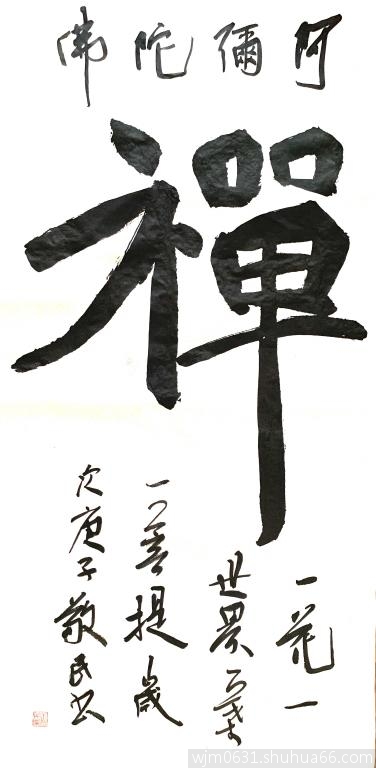 阿彌陀佛
禪
一花一
世界一葉
一菩提歲
次庚子敬民书
wjm0631.shuhua66.com